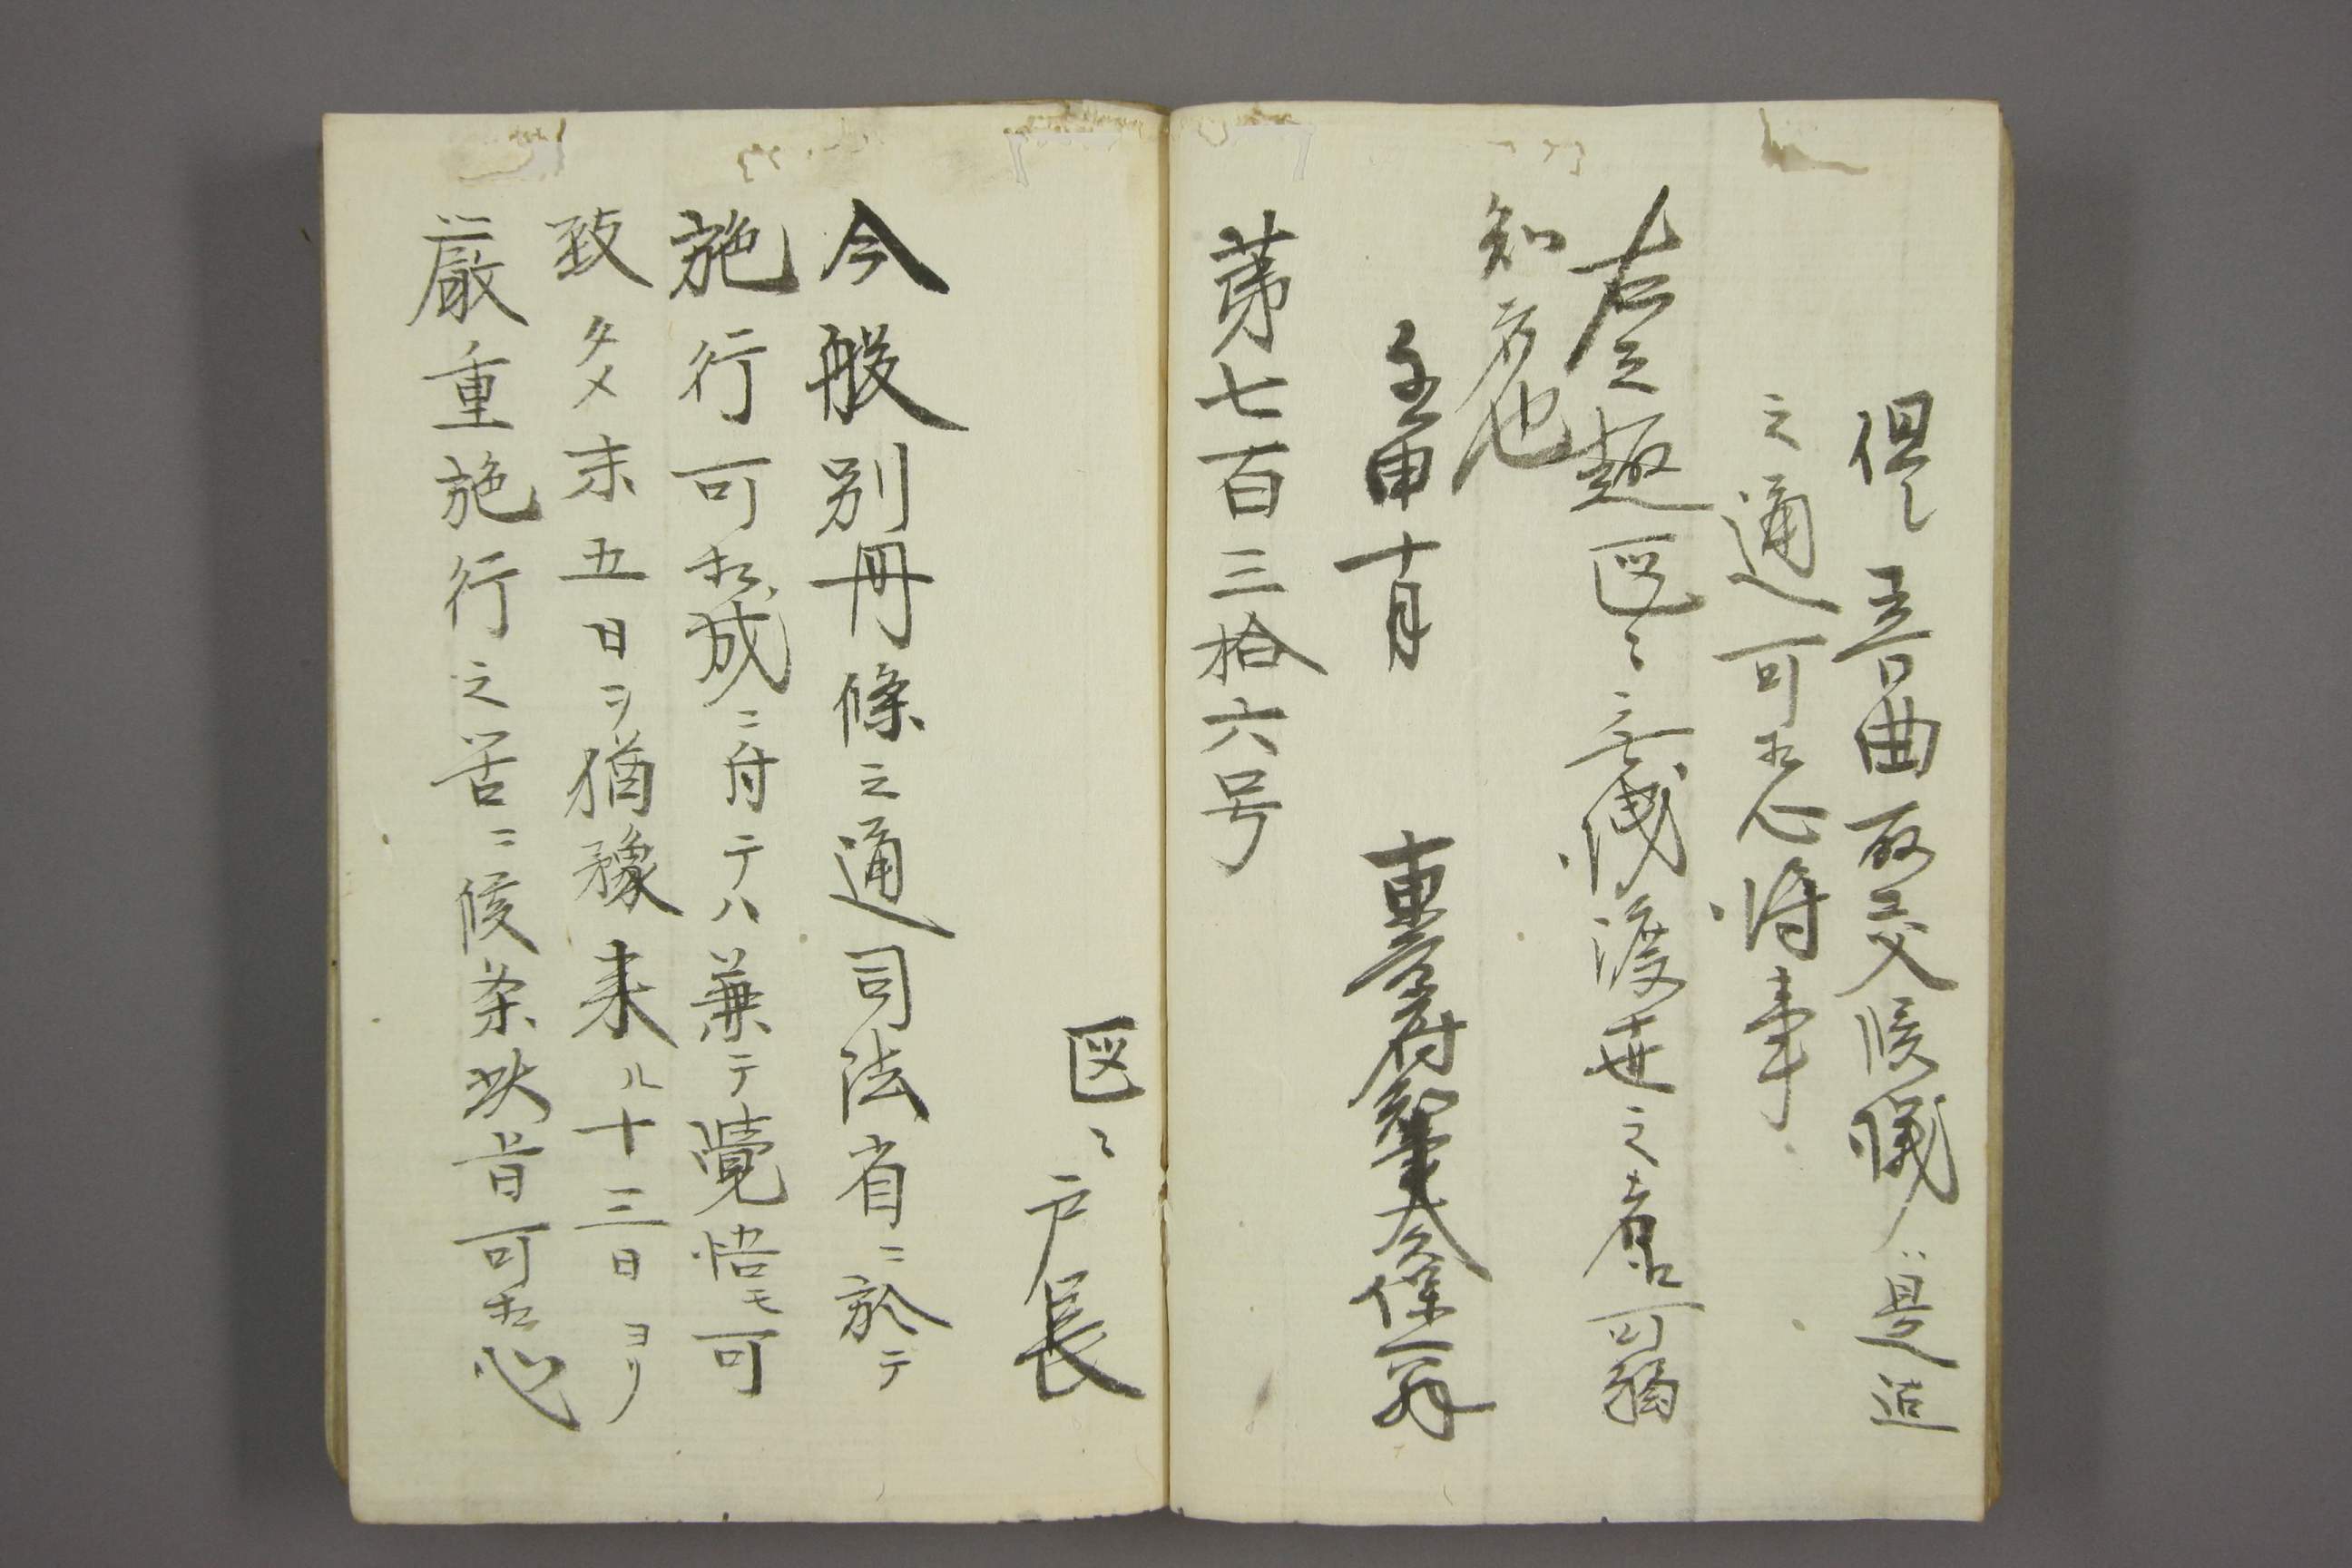 但シ音曲取交候儀ハ是迄
之通可相心得事
右之趣区々無洩渡世之者江可相
知者也
壬申十月　東京府知事大久保一翁
第七百三拾六号
区々戸長
今般別冊條之通司法省ニ於テ
施行可相成ニ付テハ兼テ覚悟モ可
致タメ末五日ヲ猶豫来ル十三日ヨリ
厳重施行之筈ニ候条此旨可相心